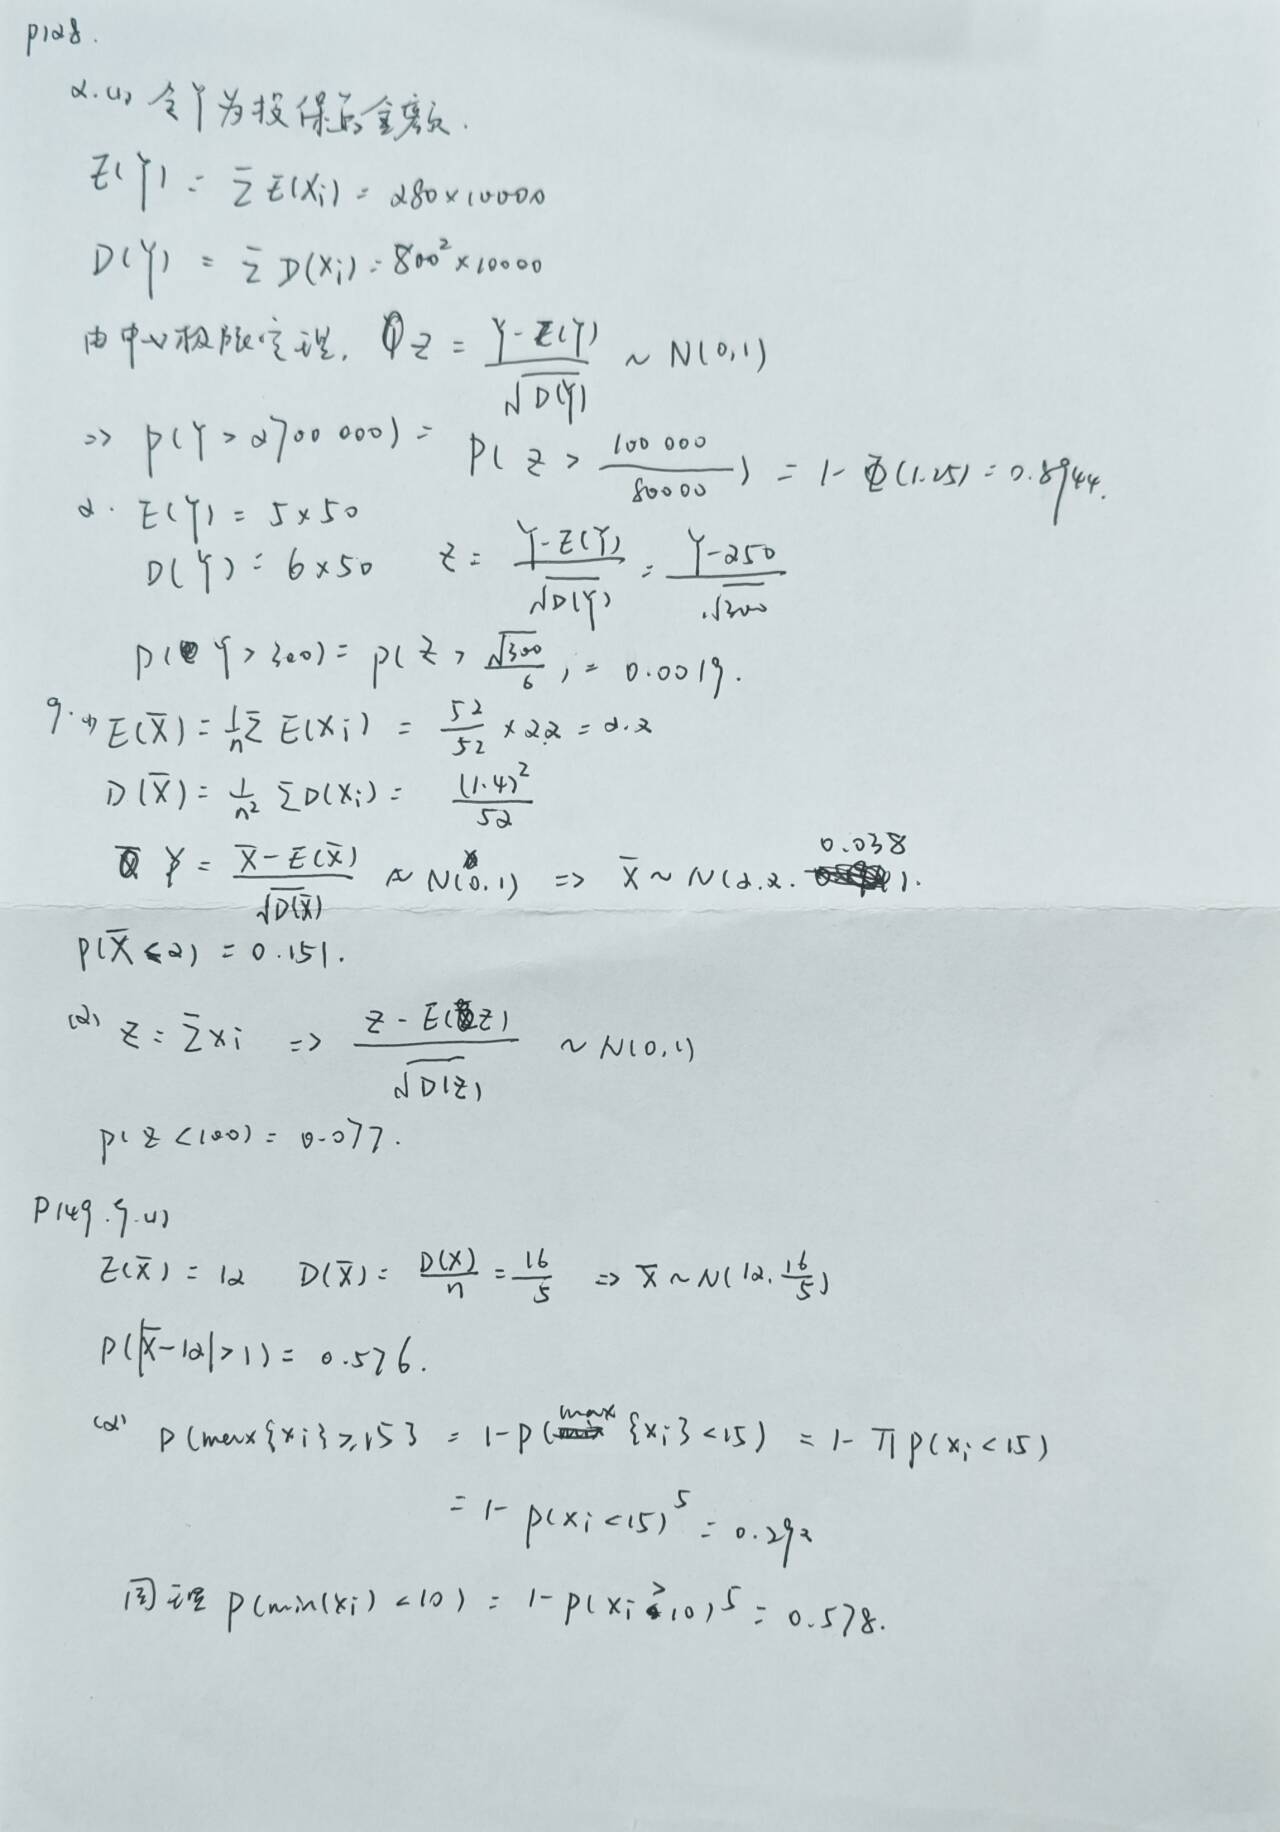 P128.
2.(1) 令Y为投保的金额.
E(Y) = Σ E(Xi) = 280×10000
D(Y) = Σ D(Xi) = 800²×10000
由中心极限定理, Z = (Y-E(Y))/√D(Y) ~ N(0,1)
=> P(Y>2700 000) = P(Z > 100 000/80000) = 1-Φ(1.25) = 0.8944.
2. E(Y) = 5×50
D(Y) = 6×50 Z = (Y-E(Y))/√D(Y) = (Y-250)/√300
P(Y>300) = P(Z > √300/6) = 0.0019.
9.(1) E(X̄) = 1/n Σ E(Xi) = 52/52 × 2.2 = 2.2
D(X̄) = 1/n² ΣD(Xi) = (1.4)²/52
Y = (X̄-E(X̄))/√D(X̄) ~ N(0,1) => X̄ ~ N(2.2, 0.038).
P(X̄<2) = 0.151.
(2) Z = Σxi => (Z-E(Z))/√D(Z) ~ N(0,1)
P(Z<100) = 0.077.
P149.9.(1)
E(X̄) = 12 D(X̄) = D(X)/n = 16/5 => X̄ ~ N(12, 16/5)
P(|X̄-12|>1) = 0.576.
(2) P(max{xi}≥15} = 1-P(max{xi}<15) = 1-ΠP(xi<15)
= 1-P(xi<15)⁵ = 0.292
同理 P(min(xi)<10) = 1-P(xi>10)⁵ = 0.578.